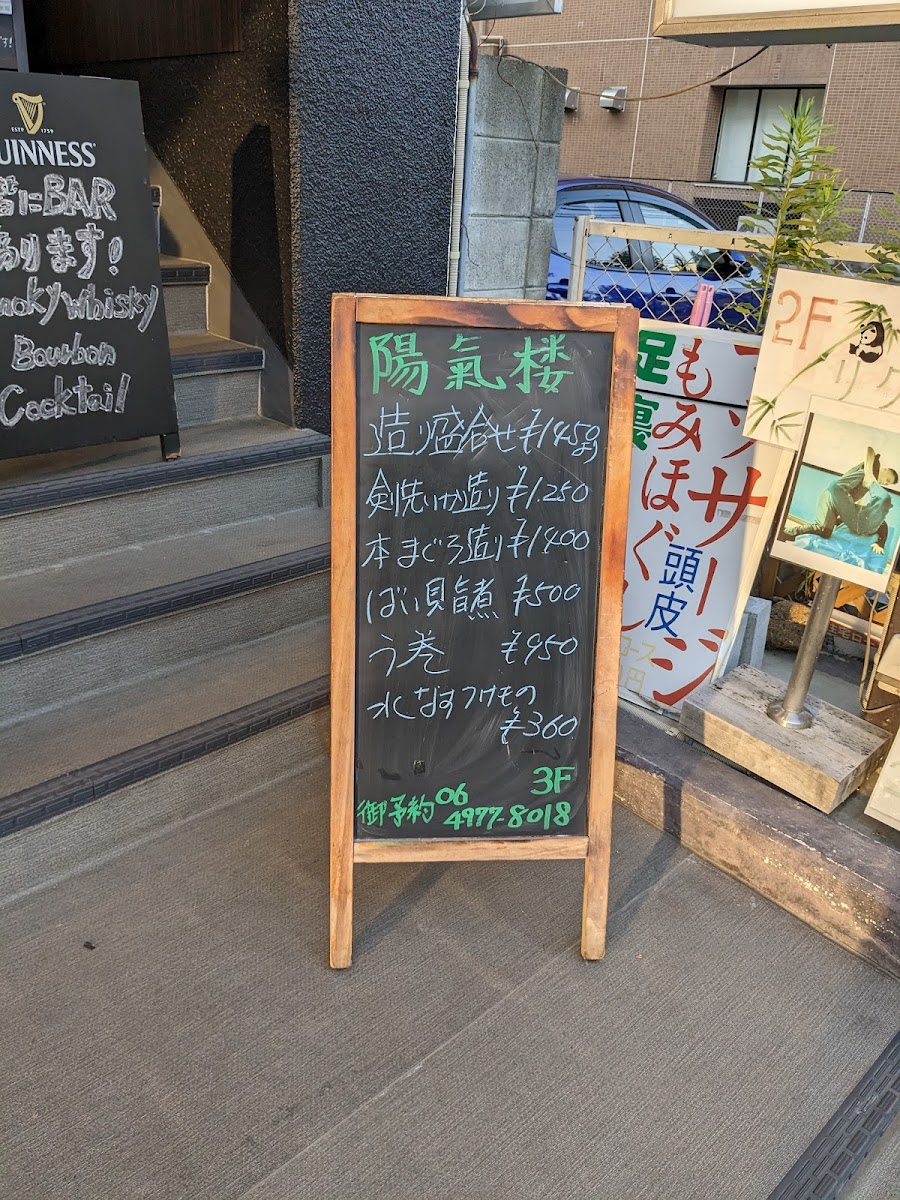 GUINNESS
ESTD 1759
BAR
あります!
Smoky Whisky
Bourbon
Cocktail
陽氣楼
造り盛合せ ¥1450より
剣先いか造り ¥1.250
本まぐろ造り ¥1400
ばい貝旨煮 ¥500
う巻 ¥950
水なすつけもの
¥360
3F
御予約 06
4977-8018
足裏
もみほぐし
マッサージ
頭皮
コース
円
2F
リラ